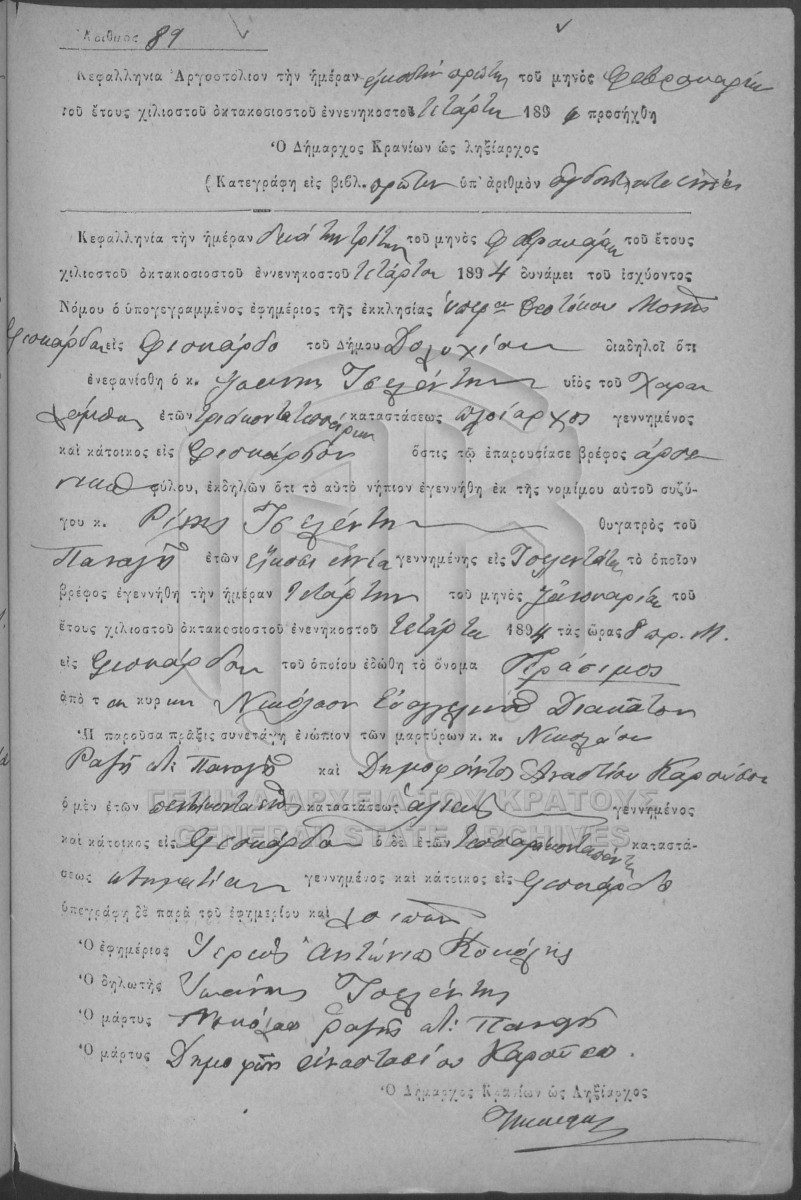 Ἀριθμὸς 89
Κεφαλληνία Ἀργοστόλιον τὴν ἡμέραν εἰκοστὴν πρώτην τοῦ μηνὸς Φεβρουαρίου
τοῦ ἔτους χιλιοστοῦ ὀκτακοσιοστοῦ ἐννενηκοστοῦ τετάρτου 1894 προσήχθη
Ὁ Δήμαρχος Κρανίων ὡς ληξίαρχος
(Κατεγράφη εἰς βιβλ. πρῶτον ὑπ' ἀριθμὸν
Κεφαλληνία τὴν ἡμέραν δεκάτην τρίτην τοῦ μηνὸς Φεβρουαρίου τοῦ ἔτους
χιλιοστοῦ ὀκτακοσιοστοῦ ἐννενηκοστοῦ τετάρτου 1894 δυνάμει τοῦ ἰσχύοντος
Νόμου ὁ ὑπογεγραμμένος ἐφημέριος τῆς ἐκκλησίας ὑπερας Θεοτόκου Μονῆς
Φισκάρδου εἰς Φισκάρδο τοῦ Δήμου Δολιχίου διαδηλοῖ ὅτι
ἐνεφανίσθη ὁ κ. Ἰωάννης Τσελέντης υἱὸς τοῦ Χαρα
λάμπους ἐτῶν τριάκοντα τεσσάρων καταστάσεως πλοίαρχος γεννημένος
καὶ κάτοικος εἰς Φισκάρδον ὅστις τῷ ἐπαρουσίασε βρέφος ἀρσε
νικοῦ φύλου, ἐκδηλῶν ὅτι τὸ αὐτὸ νήπιον ἐγεννήθη ἐκ τῆς νομίμου αὐτοῦ συζύ-
γου κ. Ρίνης Τσελέντη θυγατρὸς τοῦ
Παναγῆ ἐτῶν εἴκοσι ἐννέα γεννημένης εἰς Τσελεντάτα τὸ ὁποῖον
βρέφος ἐγεννήθη τὴν ἡμέραν τετάρτην τοῦ μηνὸς Ἰανουαρίου τοῦ
ἔτους χιλιοστοῦ ὀκτακοσιοστοῦ ἐνενηκοστοῦ τετάρτου 1894 τὰς ὥρας 8 πρ. Μ.
εἰς Φισκάρδον τοῦ ὁποίου ἐδώθη τὸ ὄνομα Γεράσιμος
ἀπὸ τον κυριον Νικόλαον Εὐαγγελινοῦ Διακάτον
Ἡ παροῦσα πρᾶξις συνετάγη ἐνώπιον τῶν μαρτύρων κ. κ. Νικολάου
Ραζῆ Παναγῆ καὶ Δημοφόντος Ἀναστασίου Καρούσου
ὁ μὲν ἐτῶν καταστάσεως ἁλιεὺς γεννημένος
καὶ κάτοικος εἰς Φισκάρδον ὁ δὲ ἐτῶν τεσσαράκοντα πέντε καταστά-
σεως κτηματίου γεννημένος καὶ κάτοικος εἰς Φισκάρδο
ὑπεγράφη δὲ παρὰ τοῦ ἐφημερίου καὶ λοιπῶν
Ὁ ἐφημέριος Ἱερεὺς Ἀντώνιος
Ὁ δηλωτὴς Ἰωάννης Τσελέντης
Ὁ μάρτυς Νικόλαος Ραζῆς Παναγῆ
Ὁ μάρτυς Δημοφῶν Ἀναστασίου Καρούσο.
Ὁ Δήμαρχος Κρανίων ὡς Ληξίαρχος
ΓΕΝΙΚΑ ΑΡΧΕΙΑ ΤΟΥ ΚΡΑΤΟΥΣ
GENERAL STATE ARCHIVES